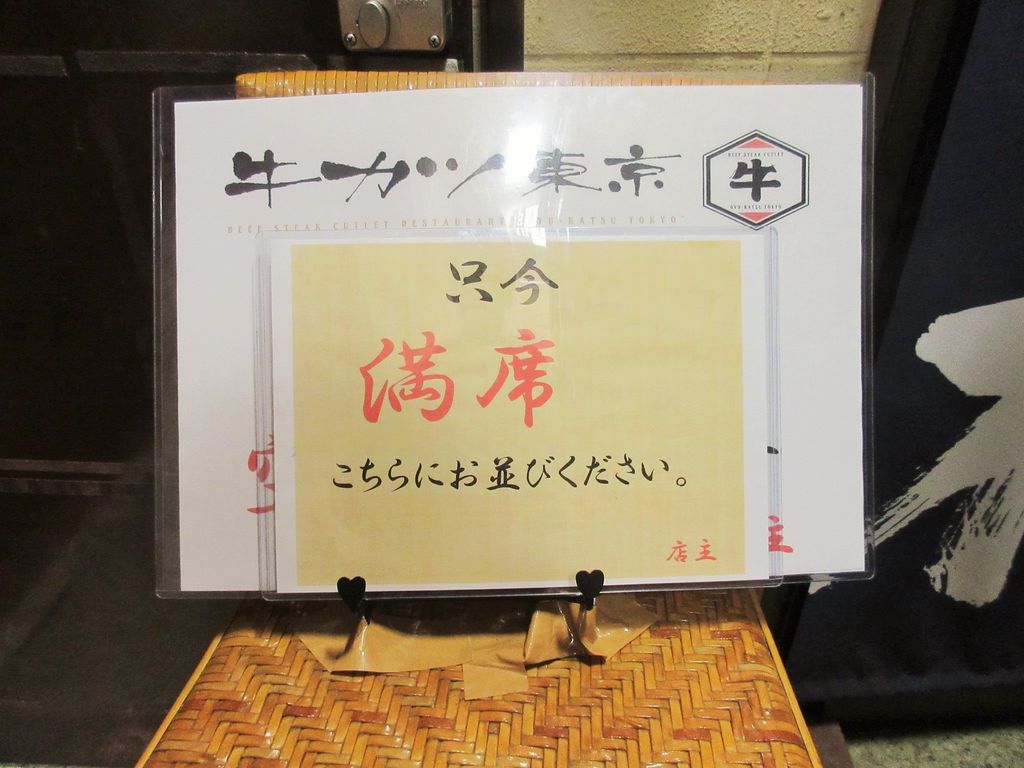 牛カツ東京
BEEF STEAK CUTLET RESTAURANT GYU-KATSU TOKYO
BEEF STEAK CUTLET
牛
GYU-KATSU TOKYO
只今
満席
こちらにお並びください。
店主
主